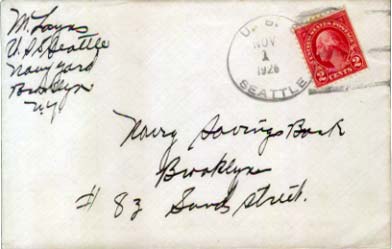 M. Layns
U.S.S. Seattle
Navy Yard
Brooklyn
N.Y.
U. S. S.
NOV
1
1926
SEATTLE
UNITED STATES POSTAGE
2 CENTS 2
Navy Savings Bank
Brooklyn
# 83 Sands Street.